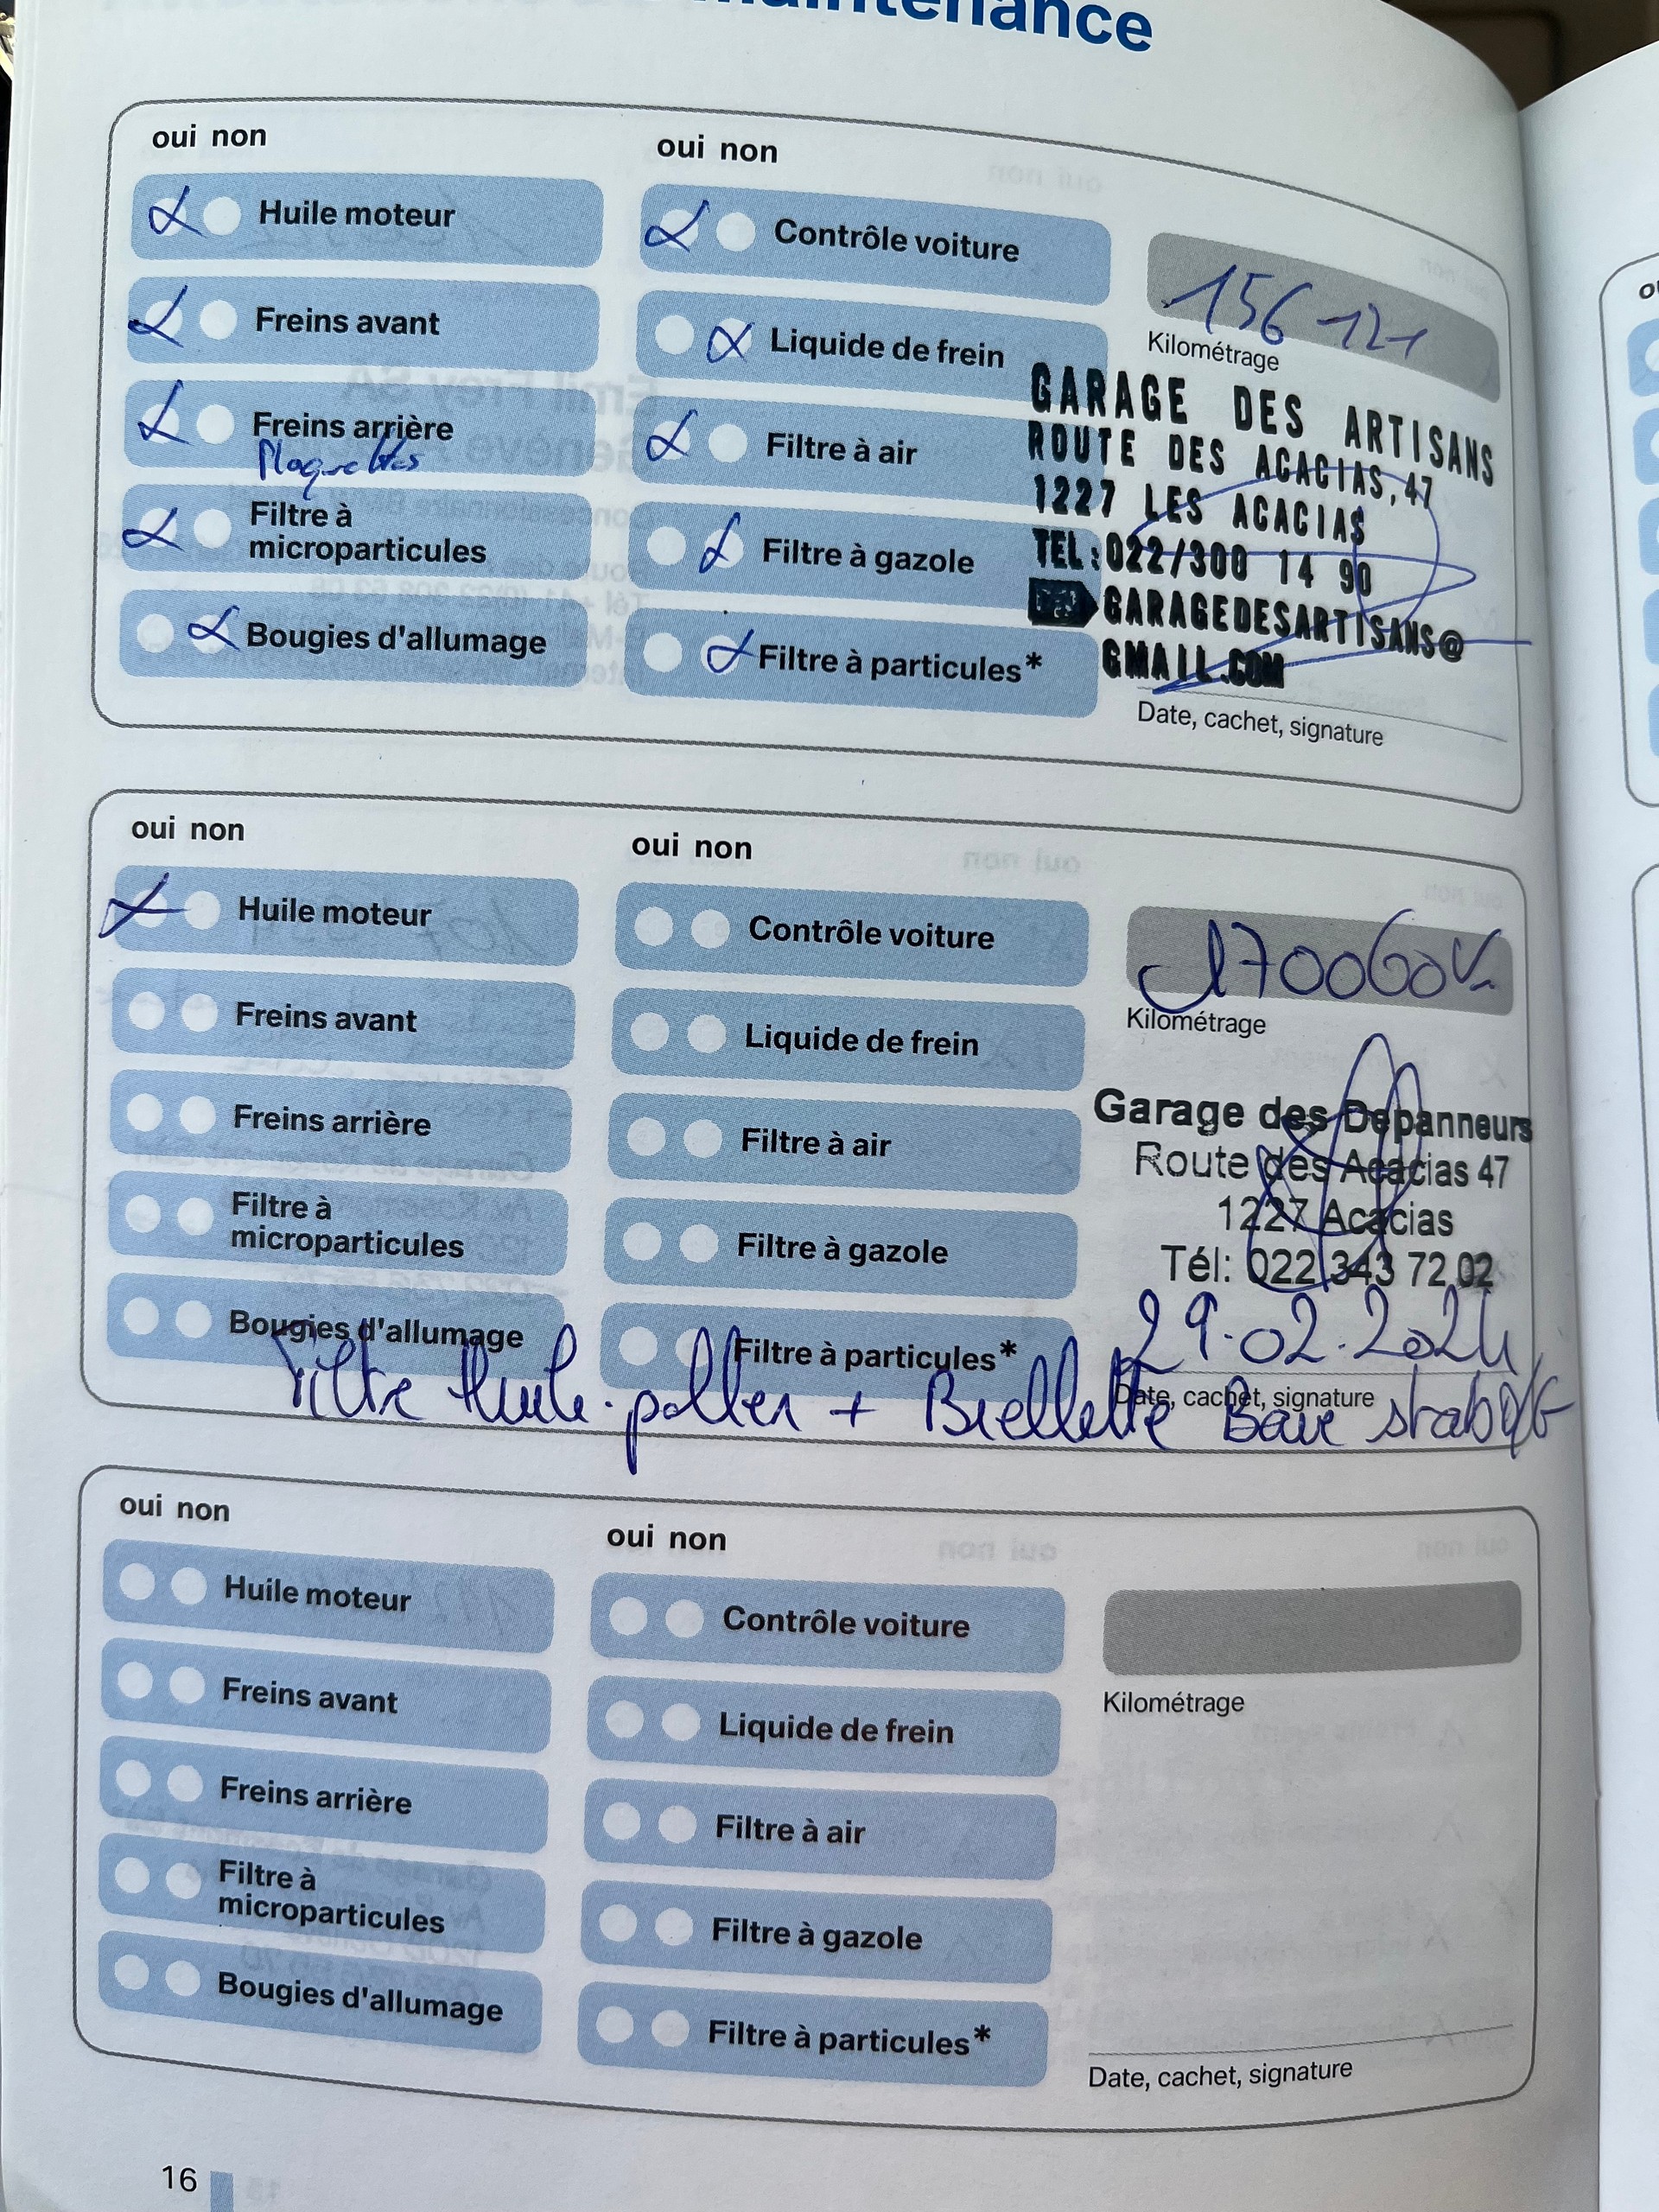 maintenance
oui non
oui non
Huile moteur
Contrôle voiture
156 121
Kilométrage
Freins avant
Liquide de frein
Freins arrière
Plaquettes
Filtre à air
Filtre à
microparticules
Filtre à gazole
Bougies d'allumage
Filtre à particules*
GARAGE DES ARTISANS
ROUTE DES ACACIAS, 47
1227 LES ACACIAS
TEL: 022/300 14 90
GARAGEDESARTISANS@
GMAIL.COM
Date, cachet, signature
oui non
oui non
Huile moteur
Contrôle voiture
170060 K
Kilométrage
Freins avant
Liquide de frein
Freins arrière
Filtre à air
Filtre à
microparticules
Filtre à gazole
Bougies d'allumage
Filtre à particules*
Garage des Depanneurs
Route des Acacias 47
1227 Acacias
Tél: 022 343 72 02
29.02.2024
Date, cachet, signature
Filtre huile. pollen + Biellette Barre stab D/G
oui non
oui non
Huile moteur
Contrôle voiture
Kilométrage
Freins avant
Liquide de frein
Freins arrière
Filtre à air
Filtre à
microparticules
Filtre à gazole
Bougies d'allumage
Filtre à particules*
Date, cachet, signature
16